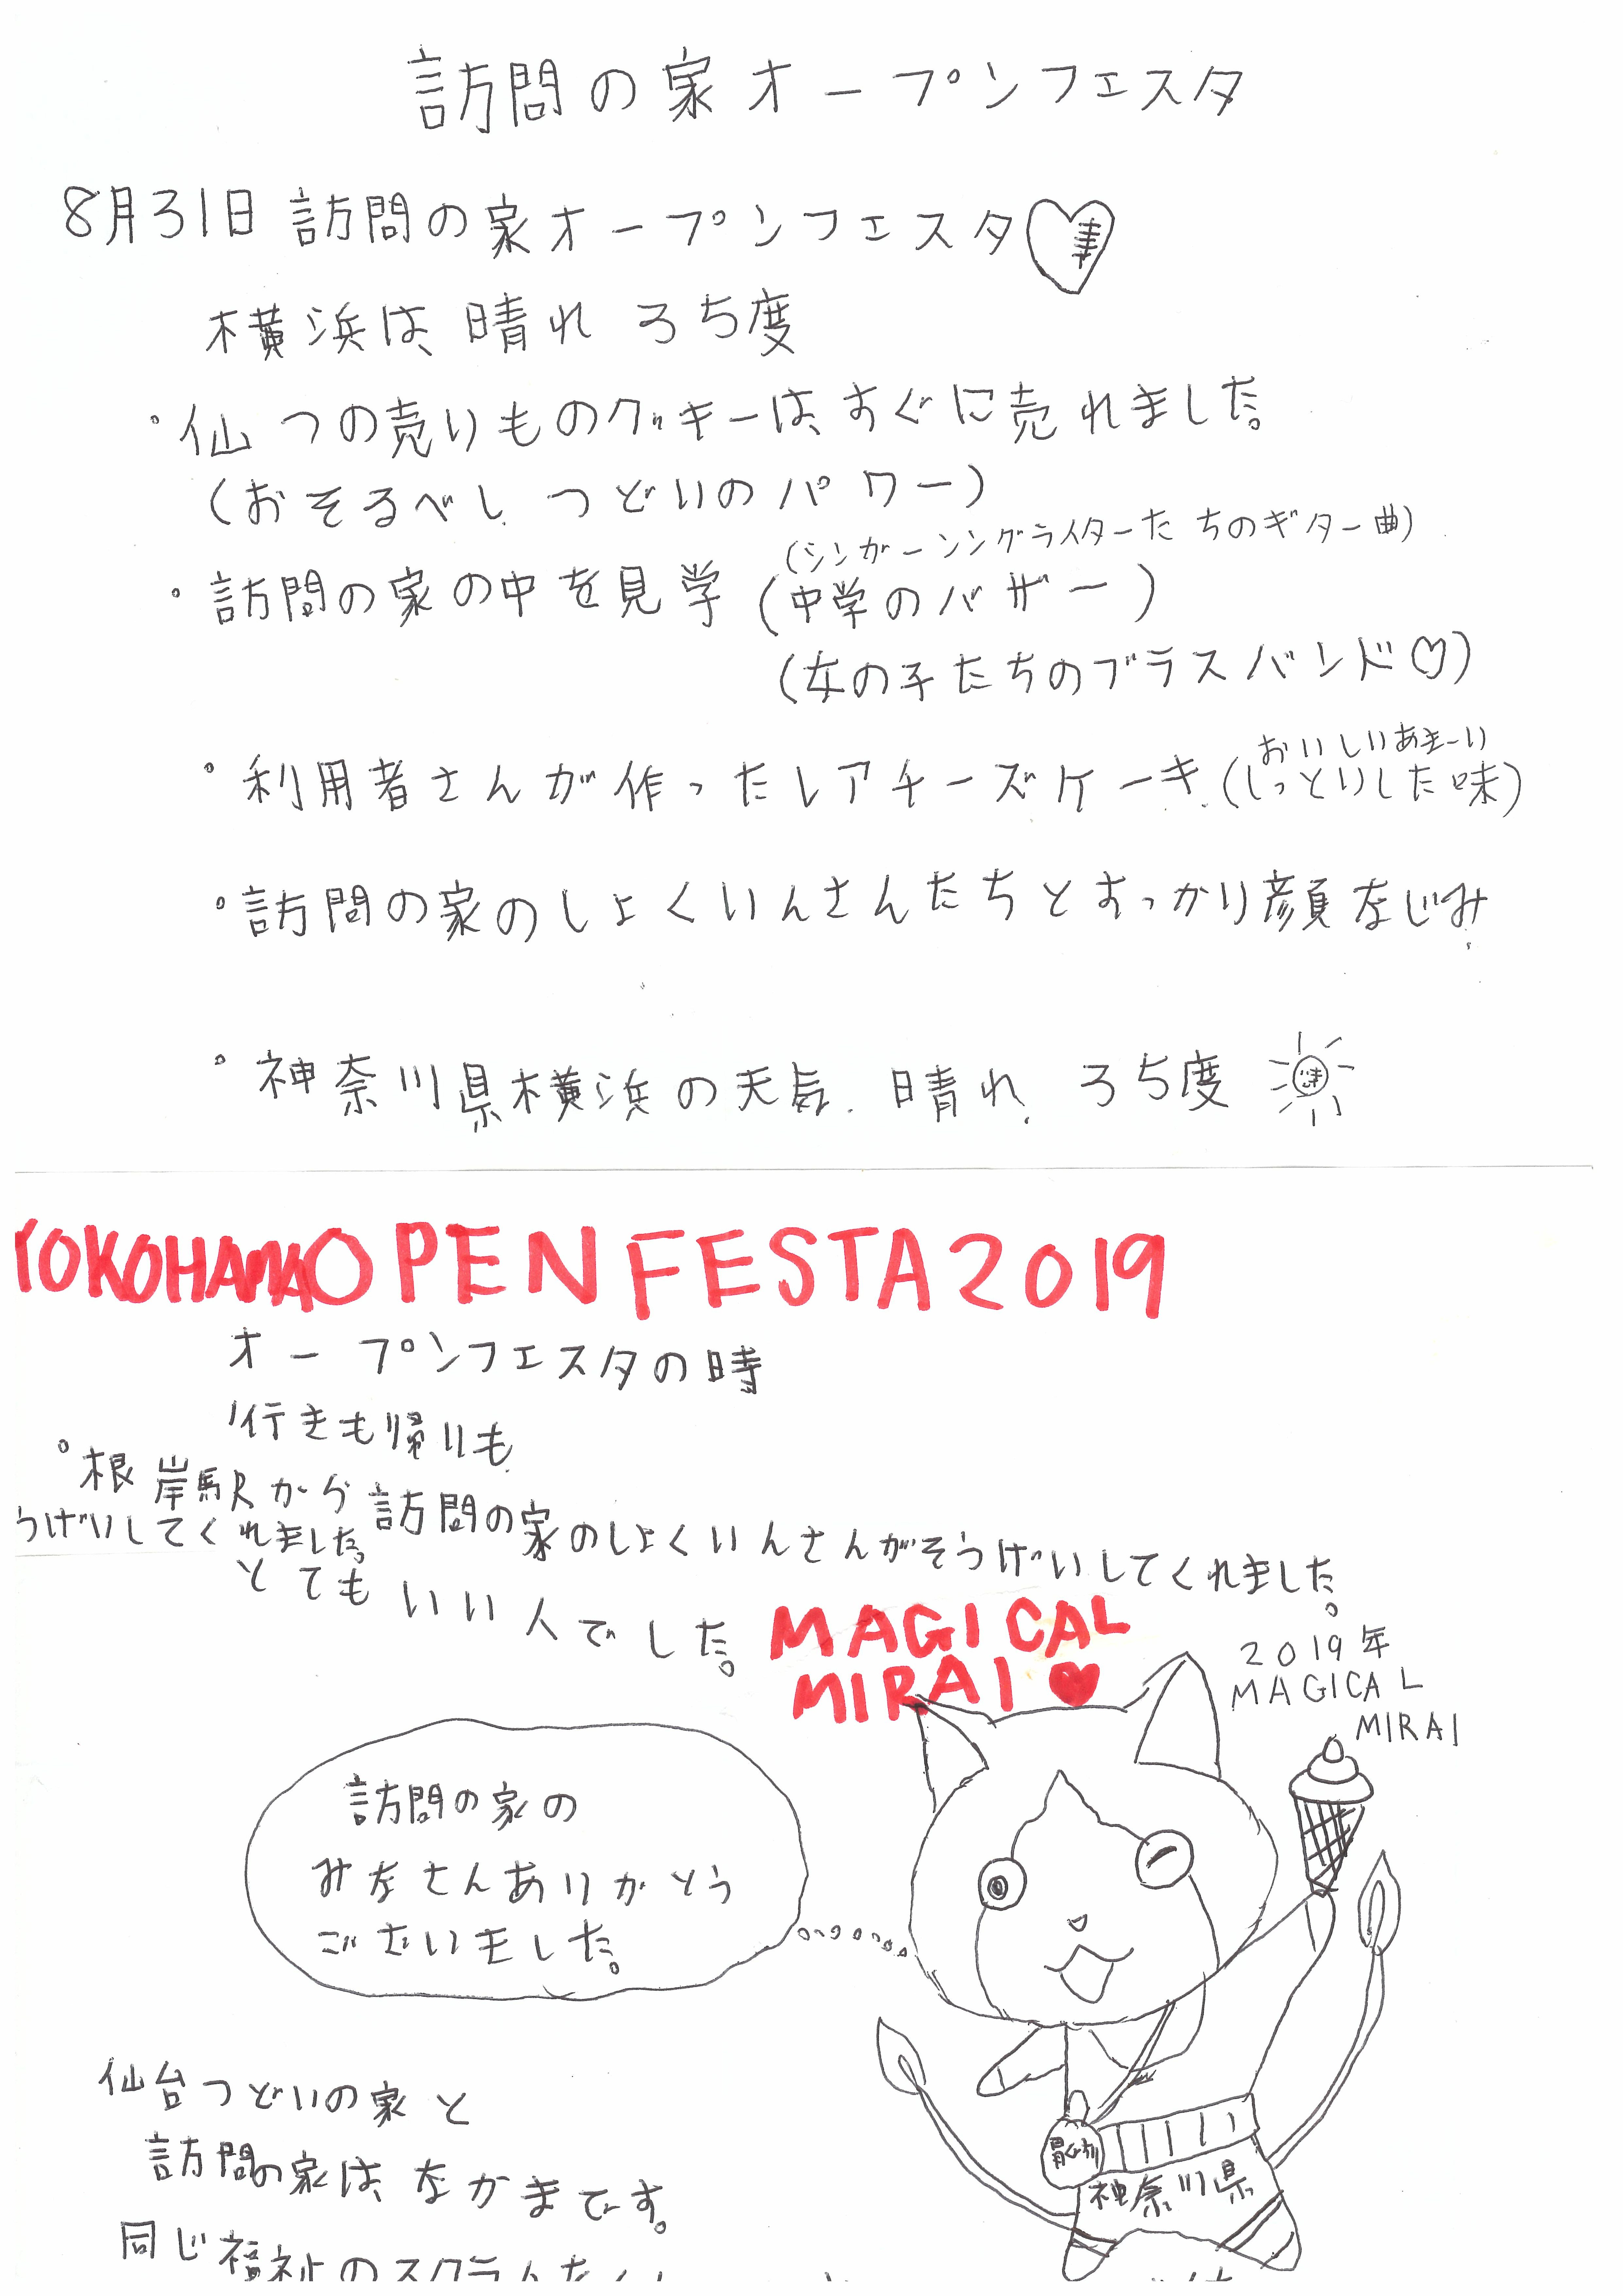 訪問の家オープンフェスタ
8月31日 訪問の家オープンフェスタ
横浜は、晴れ 35度
・仙つの売りものクッキーは、すぐに売れました。
(おそるべし、つどいのパワー)
(シンガーソングライターたちのギター曲)
・訪問の家の中を見学 (中学のバザー)
(女の子たちのブラスバンド♡)
おいしいあまーい
・利用者さんが作ったレアチーズケーキ、(しっとりした味)
・訪問の家のしょくいんさんたちとすっかり顔なじみ
・神奈川県横浜の天気、晴れ、35度
YOKOHAMA OPEN FESTA 2019
オープンフェスタの時
行きも帰りも
・根岸駅から訪問の家のしょくいんさんがそうげいしてくれました。
うげいしてくれました。
とてもいい人でした。
MAGICAL
MIRAI ♥
2019年
MAGICAL
MIRAI
訪問の家の
みなさんありがとう
ございました。
仙台つどいの家と
訪問の家は、なかまです。
神奈川県
同じ福祉のスクラム